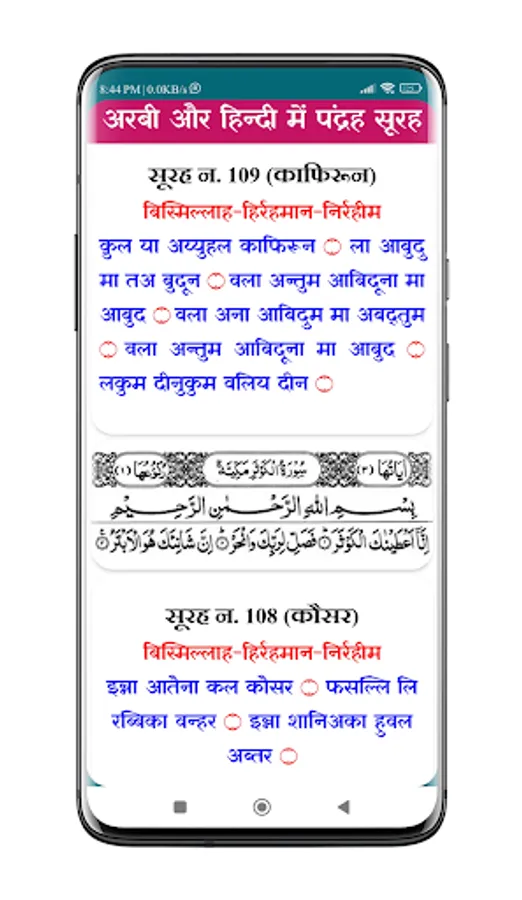 8:44 PM | 0.0KB/s
अरबी और हिन्दी में पंद्रह सूरह
सूरह न. 109 (काफिरून)
बिस्मिल्लाह-हिर्रहमान-निर्रहीम
कुल या अय्युहल काफिरून ۝ ला आबुदु
मा तअ बुदून ۝ वला अन्तुम आबिदूना मा
आबुद ۝ वला अना आबिदुम मा अबद्तुम
۝ वला अन्तुम आबिदूना मा आबुद ۝
लकुम दीनुकुम वलिय दीन ۝
اٰیَاتُهَا (۳) سُوْرَةُ الْكَوْثَرِ مَكِّيَّةٌ رُكُوْعُهَا (۱)
بِسْمِ اللهِ الرَّحْمٰنِ الرَّحِيْمِ
اِنَّاۤ اَعْطَيْنٰكَ الْكَوْثَرَ ؕ فَصَلِّ لِرَبِّكَ وَانْحَرْ ؕ اِنَّ شَانِئَكَ هُوَ الْاَبْتَرُ
सूरह न. 108 (कौसर)
बिस्मिल्लाह-हिर्रहमान-निर्रहीम
इन्ना आतेना कल कोसर ۝ फसल्लि लि
रब्बिका वन्हर ۝ इन्ना शानिअका हुवल
अब्तर ۝